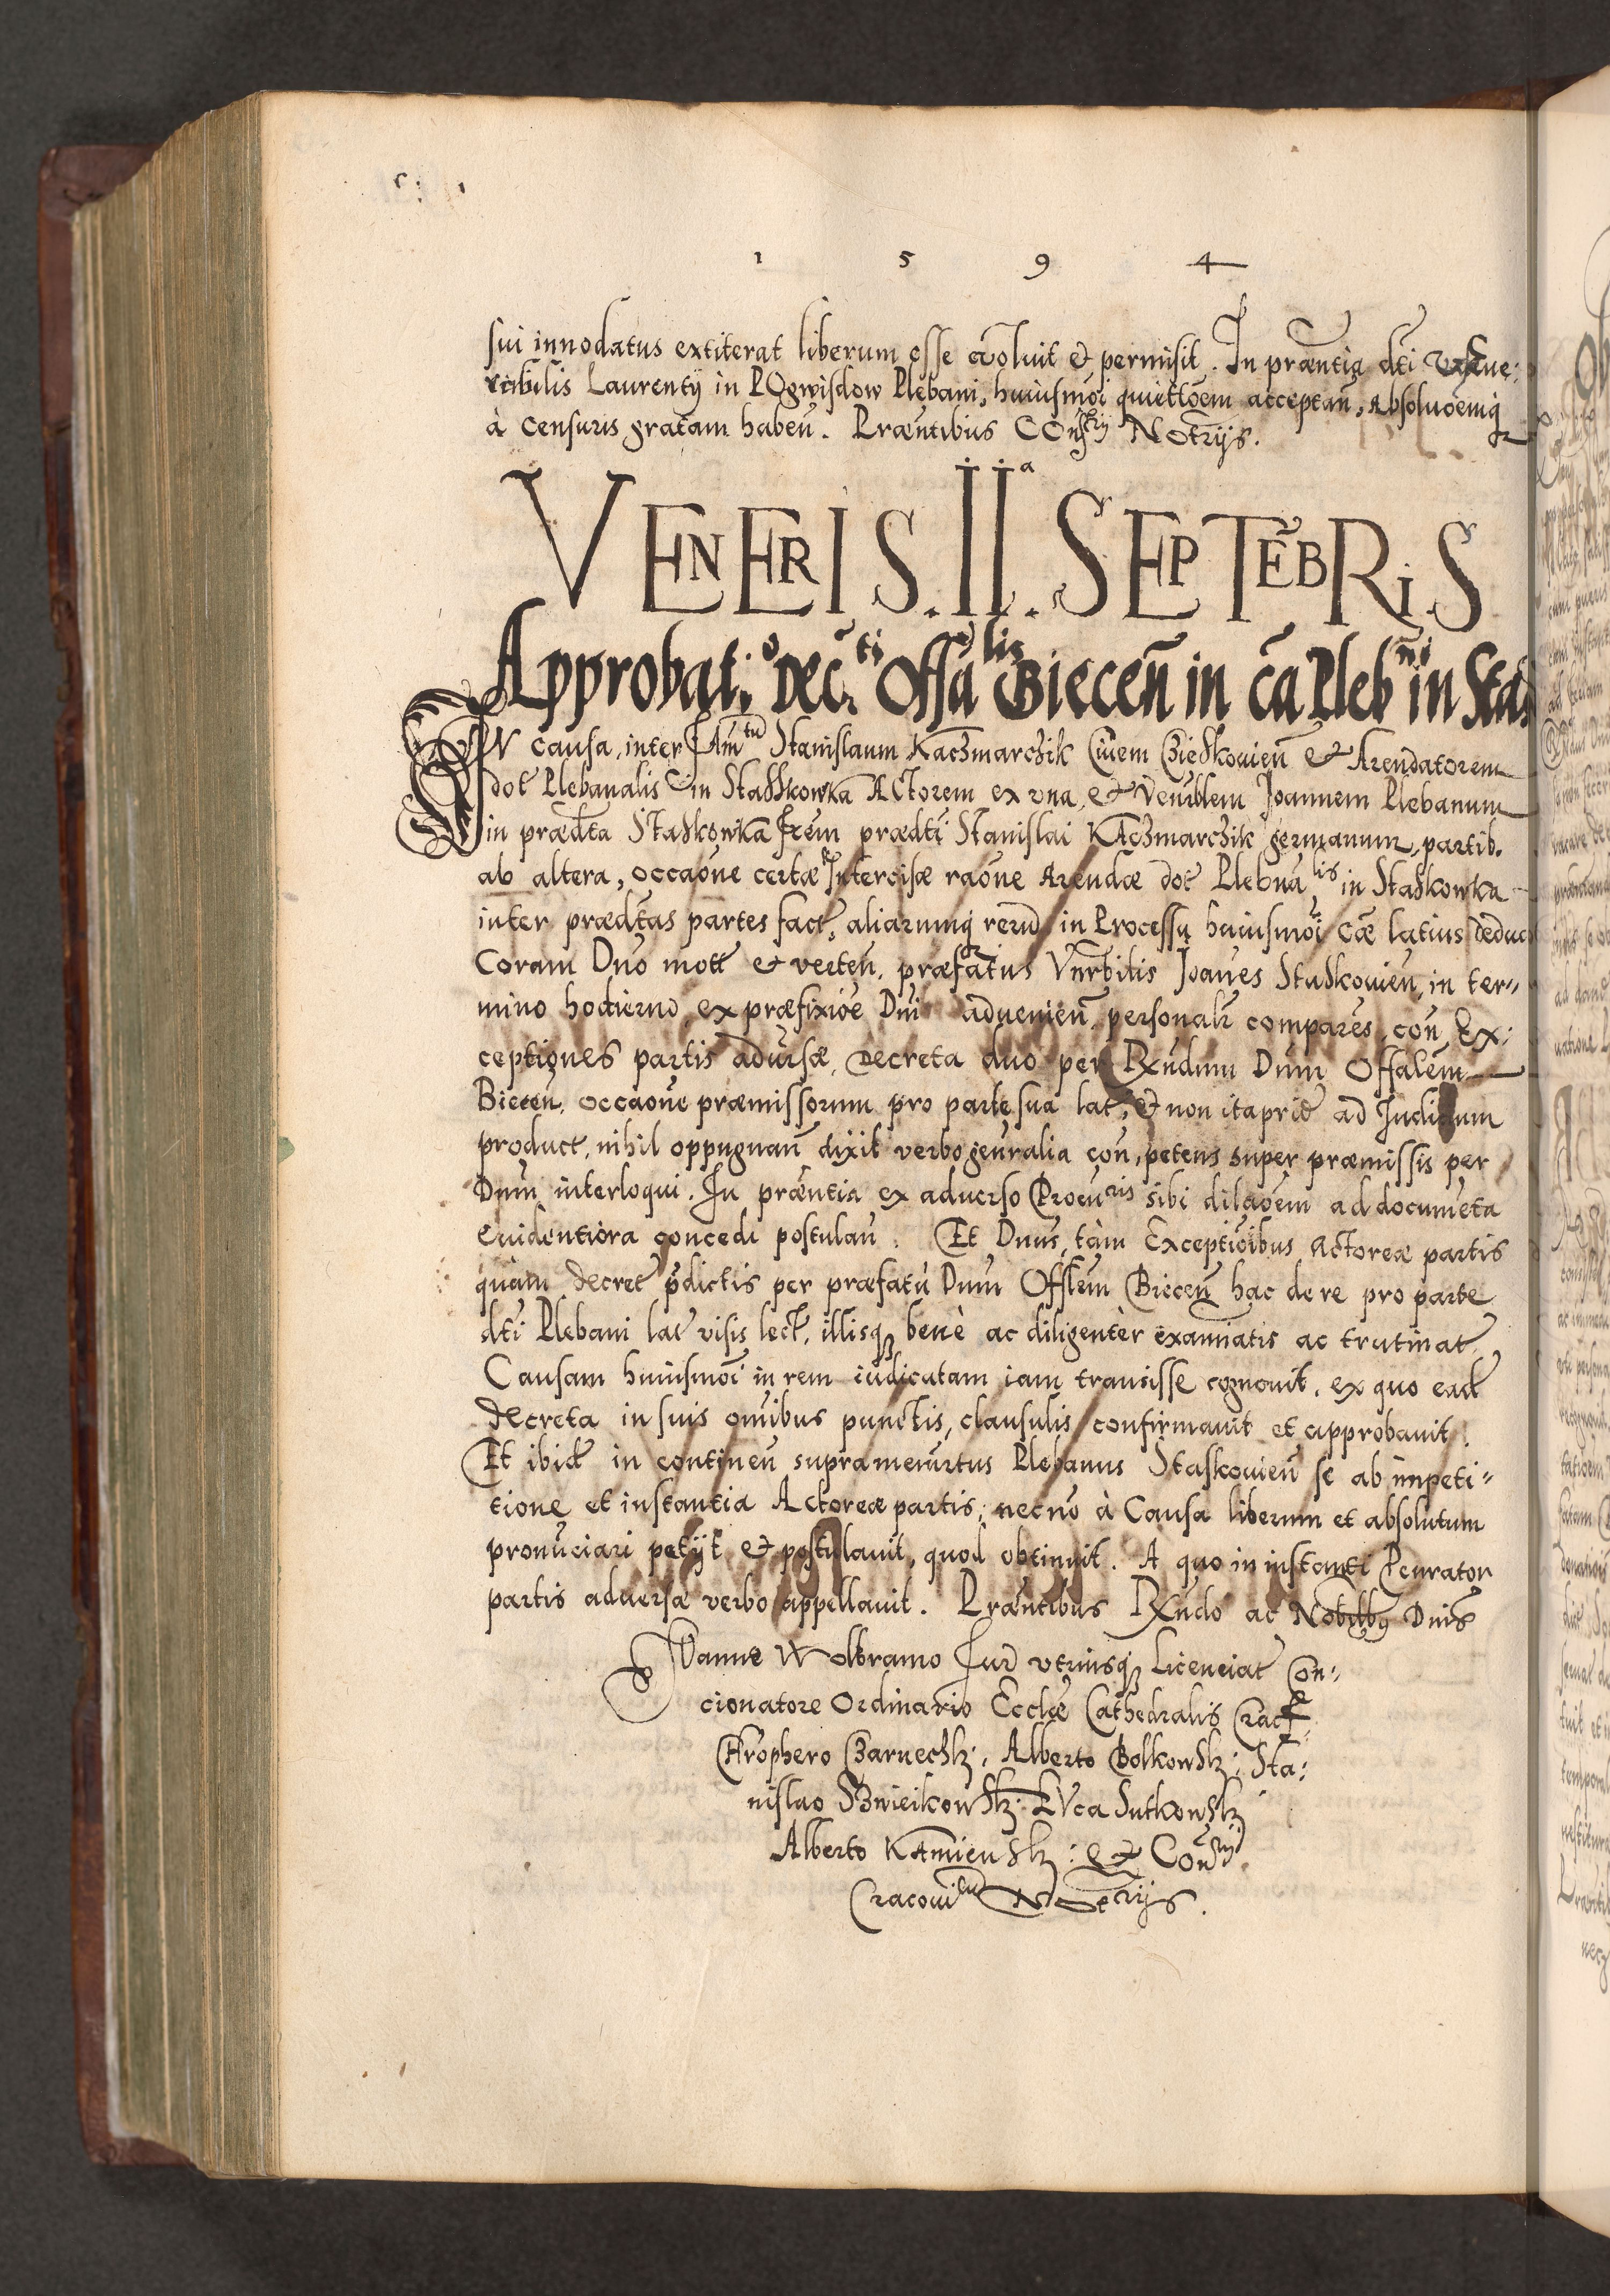 1 5 9 4
sui innodatus extiterat liberum esse voluit & permisit. In præntia dti Vene:
rabilis Laurentÿ in POgwisdow Plebani, huiusmoi quiettoem acceptañ, Absoluoemq
à Censuris gratam habeñ. Præntibus COnstrij NOtrijs.
VENERIS. II.ª SEPTEBRiS
Approbat:º Decti Offalis Bieceñ in cā Plebni in Stas
IN causa, inter Famtu Stanislaum Kaczmarczik Ciuem Cieskouieñ & Arendatorem
dot Plebanalis in Staskowka ACtorem ex vna, & Venrblem Joannem Plebanum
in prædta Staskowka Frem prædti Stanislai KAczmarczik germanum, partib.
ab altera, occaone certæ Intercisæ raone Arendæ dot Plebnalis in Staskowka
inter prædtas partes fact, aliarumq reru in Processu huiusmoi Cæ latius deduc
Coram Dno mott & verteñ. præfatus Vnrbilis Joanes Staskouień, in ter"
mino hodierno, ex præfixioe Dni adueniens, personalr compares, con Ex:
ceptiones partis aduersæ, Decreta duo per Rxndum Dum Offalem
Bieceñ. occaone præmissorum pro parte sua lat, & non itapride ad Judicium
product, nihil oppugnañ dixit verbo genralia con, petens super præmissis per
Dnm interloqui. In præntia ex aduerso Procuris sibi dilaoem ad documeta
euidentiora concedi postulañ. Et Dnus, tàm Exceptioibus Actoreæ partis
quàm decret pdictis per præfatu Dnm Offlem Bieceñ hac de re pro parte
dti Plebani lat visis lect, illisq benè ac diligentèr examiatis ac trutinat,
Causam huiusmoi in rem iudicatam iam transisse cognouit, ex quo ead
decreta in suis omibus punctis, clausulis confirmauit et approbauit.
Et ibide in contineñ supramemrtus Plebanus Staskouieñ se ab impeti"
tione et instantia Actoreæ partis, necno à Causa liberum et absolutum
pronuciari petÿt & postulauit, quod obtinuit. A quo in instanti Pcurator
partis aduersæ verbo appellauit. Præntibus Rxndo ac Nobilbq Dnis
JOanne Wolbramo Jurᵈ vtriusq Licenciat Con"
cionatore Ordinario Ecclæ Cathedralis Crac
Chrophero Czarneczk: Alberto Bolkowsk: Sta:
nislao Szwieikowsk: LVca Sutkowsk
Alberto KAmiensk: & Constrij
Cracouien NOtrijs.